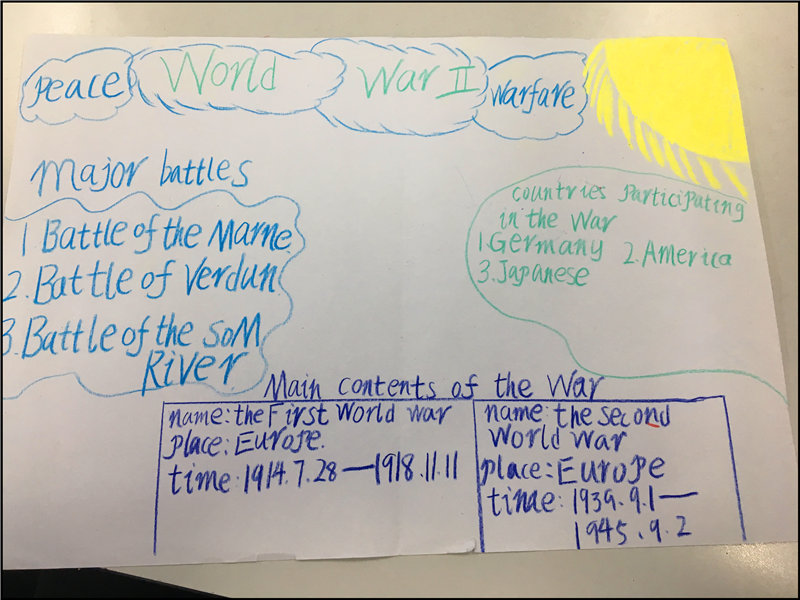 Peace World War II Warfare
Major battles
1 Battle of the Marne
2. Battle of Verdun
3. Battle of the SoM
River
Countries Participating
in the War
1. Germany 2. America
3. Japanese
Main contents of the War
name: the First World war
place: Europe.
time: 1914.7.28—1918.11.11
name: the second
World War
place: Europe
time: 1939.9.1—
1945.9.2